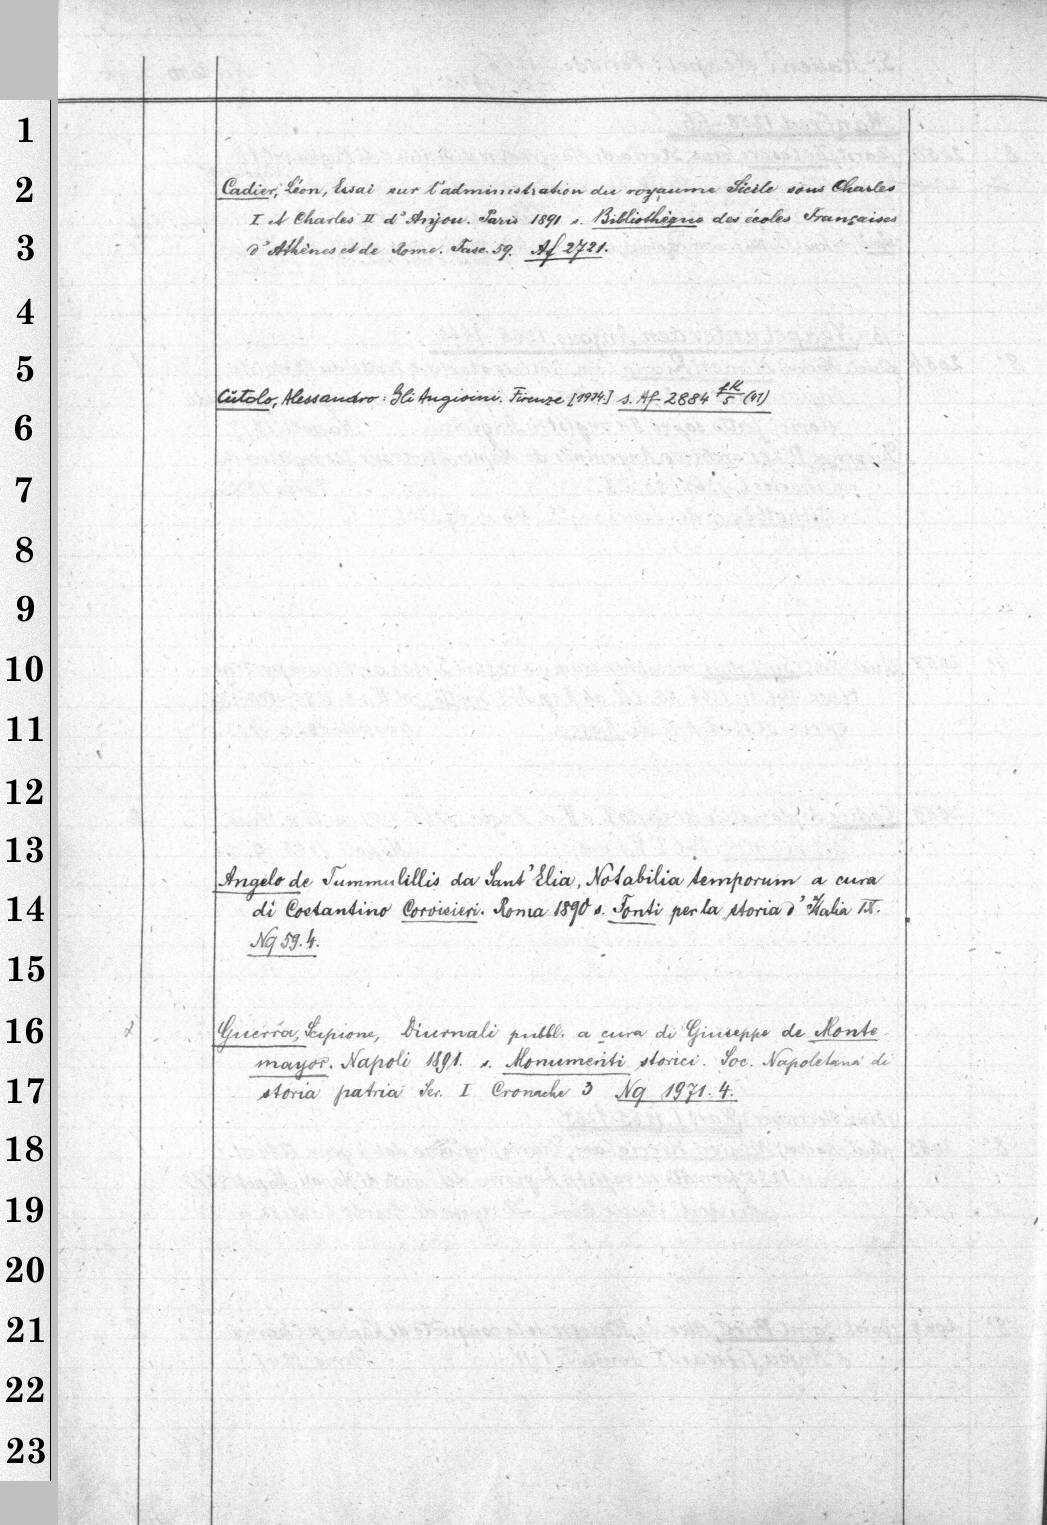 1
2
3
4
5
6
7
8
9
10
11
12
13
14
15
16
17
18
19
20
21
22
23
Cadier, Léon, Essai sur l'administration du royaume Sicile sous Charles
I et Charles II d'Anjou. Paris 1891 s. Bibliothèque des écoles Françaises
d'Athènes et de Rome. Fasc. 59. Af 2721.
Cutolo, Alessandro: Gli Angioini. Firenze [1934.] s. Af 2884 fK/5 (41)
Angelo de Tummulillis da Sant'Elia, Notabilia temporum a cura
di Costantino Corvisieri. Roma 1890 s. Fonti per la storia d'Italia IX.
Nq 59.4.
Guerra, Scipione, Diurnali pubbl. a cura di Giuseppe de Monte-
mayor. Napoli 1891. s. Monumenti storici. Soc. Napoletana di
storia patria Ser. I Cronache 3 Nq 1971.4.